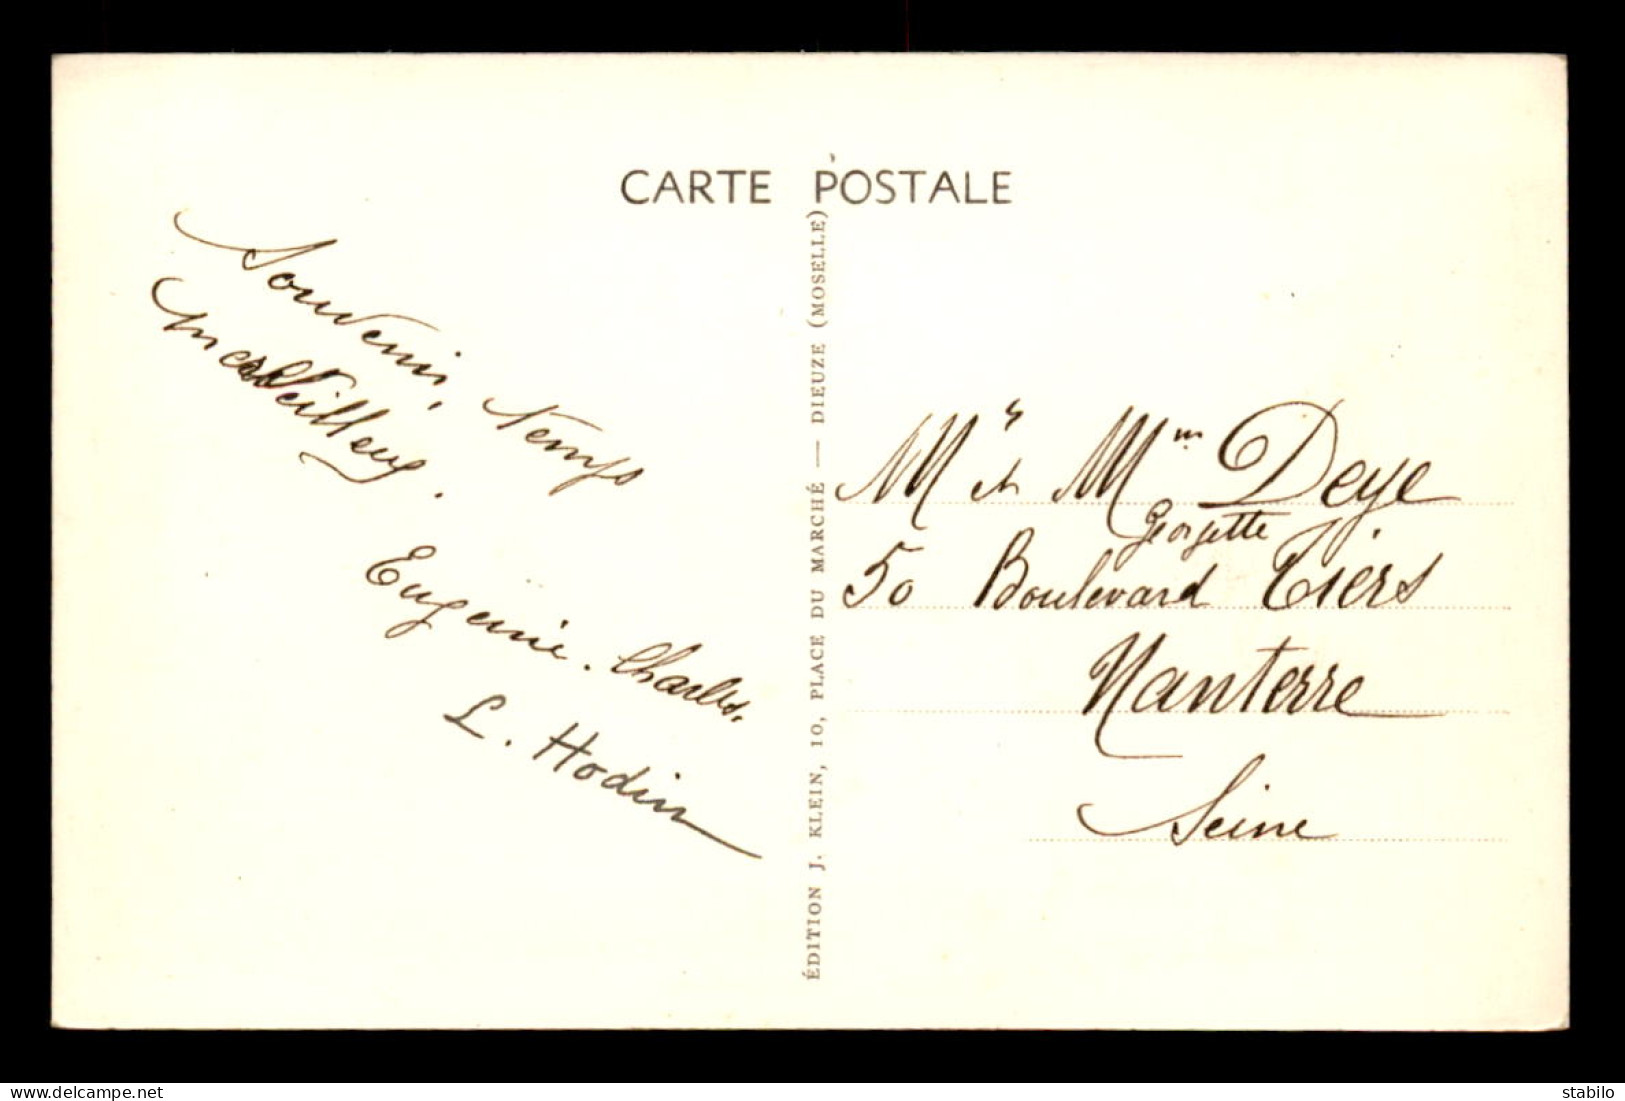 CARTE POSTALE
Souvenir, temps
merveilleux.
Eugenie. Charles.
L. Hodin
ÉDITION J. KLEIN, 10, PLACE DU MARCHÉ — DIEUZE (MOSELLE)
Mr et Mm Deye
Georgette
50 Boulevard Tiers
Nanterre
Seine
delcampe.net
stabilo